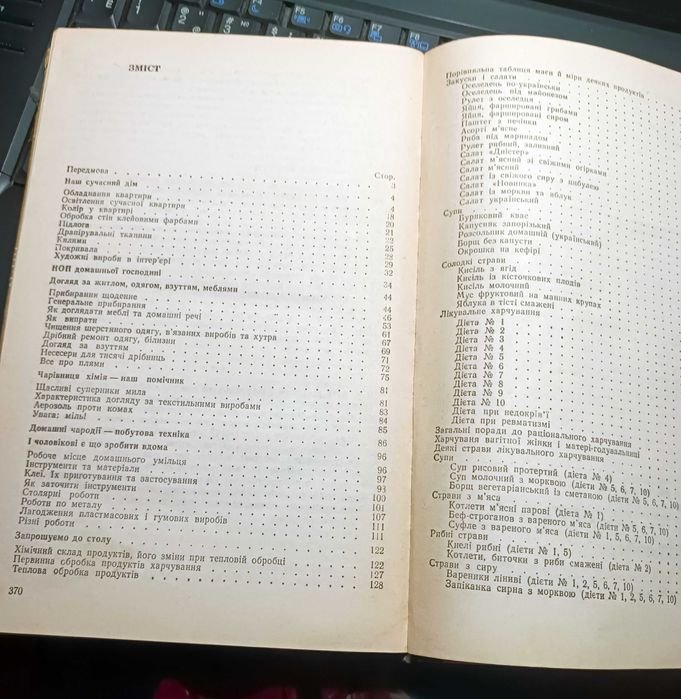 ЗМІСТ
Стор.
Передмова 3
Наш сучасний дім 4
Обладнання квартири 4
Освітлення сучасної квартири 18
Колір у квартирі 20
Обробка стін клейовими фарбами 21
Підлога
Драпірувальні тканини 25
Килими 28
Покривала 29
Художні вироби в інтер'єрі 32
НОП домашньої господині 34
Догляд за житлом, одягом, взуттям, меблями 44
Прибирання щоденне 44
Генеральне прибирання 46
Як доглядати меблі та домашні речі 53
Як випрати 61
Чищення шерстяного одягу, в'язаних виробів та хутра 67
Дрібний ремонт одягу, білизни 69
Догляд за взуттям 71
Несесери для тисячі дрібниць 72
Все про плями 75
Чарівниця хімія — наш помічник 81
Щасливі суперники мила 81
Характеристика догляду за текстильними виробами 83
Аерозоль проти комах 84
Увага: міль! 85
Домашні чародії — побутова техніка 86
І чоловікові є що зробити вдома 96
Робоче місце домашнього умільця 96
Інструменти та матеріали 97
Клеї. Їх приготування та застосування 93
Як заточити інструменти 100
Столярні роботи 101
Роботи по металу 107
Лагодження пластмасових і гумових виробів 111
Різні роботи 111
Запрошуємо до столу 122
Хімічний склад продуктів, його зміни при тепловій обробці 122
Первинна обробка продуктів харчування 127
Теплова обробка продуктів 128
370
Порівняльна таблиця маси й міри деяких продуктів
Закуски і салати
Оселедець по-українськи
Оселедець під майонезом
Рулет з оселедця
Яйця, фаршировані грибами
Яйця, фаршировані сиром
Паштет з печінки
Асорті м'ясне
Риба під маринадом
Рулет рибний, заливний
Салат «Дністер»
Салат м'ясний зі свіжими огірками
Салат м'ясний
Салат із свіжого сиру з цибулею
Салат «Новинка»
Салат із моркви та яблук
Салат український
Супи
Буряковий квас
Капусняк запорізький
Розсольник домашній (український)
Борщ без капусти
Окрошка на кефірі
Солодкі страви
Кисіль з ягід
Кисіль із кісточкових плодів
Кисіль молочний
Мус фруктовий на манних крупах
Яблука в тісті смажені
Лікувальне харчування
Дієта № 1
Дієта № 2
Дієта № 3
Дієта № 4
Дієта № 5
Дієта № 6
Дієта № 7
Дієта № 8
Дієта № 9
Дієта № 10
Дієта при недокрів'ї
Дієта при ревматизмі
Загальні поради до раціонального харчування
Харчування вагітної жінки і матері-годувальниці
Деякі страви лікувального харчування
Супи
Суп рисовий протертий (дієта № 4)
Суп молочний з морквою (дієти № 5, 6, 7, 10)
Борщ вегетаріанський із сметаною (дієти № 5, 6, 7, 10)
Страви з м'яса
Котлети м'ясні парові (дієта № 1)
Беф-строганов з вареного м'яса (дієти № 5, 6, 7, 10)
Суфле з вареного м'яса (дієти № 1, 5, 6, 7, 10)
Рибні страви
Кнелі рибні (дієти № 1, 5)
Котлети, биточки з риби смажені (дієта № 2)
Страви з сиру
Вареники ліниві (дієти № 1, 2, 5, 6, 7, 10)
Запіканка сирна з морквою (дієти № 1, 2, 5, 6, 7, 10)